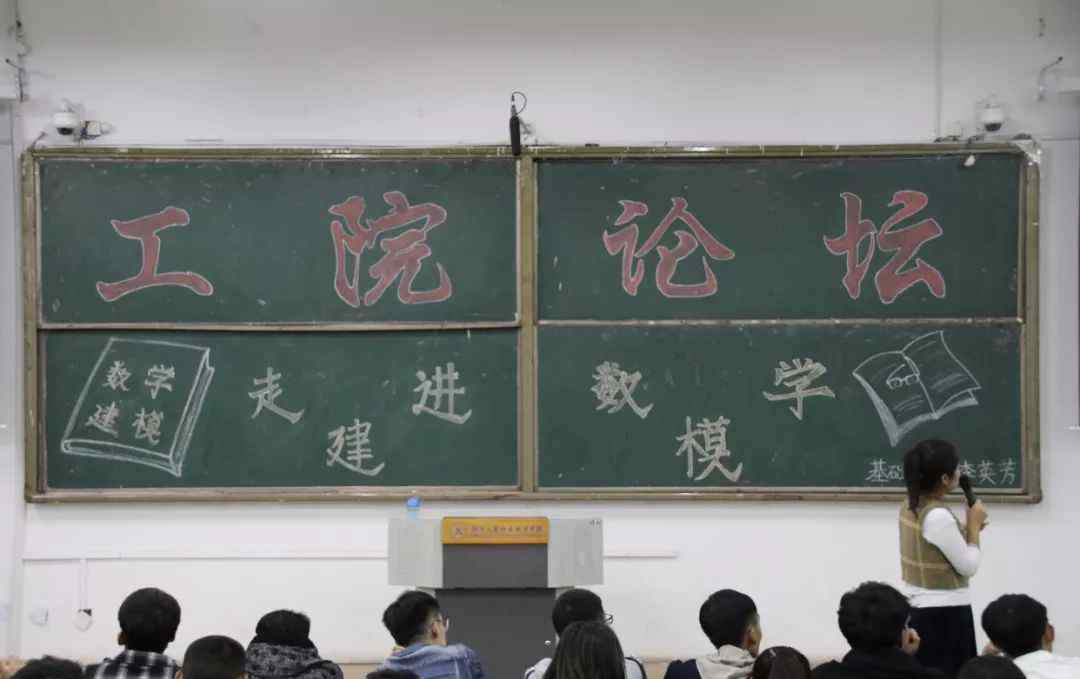 工院论坛
数学
建模
走进数学
建模
基础 李英芳